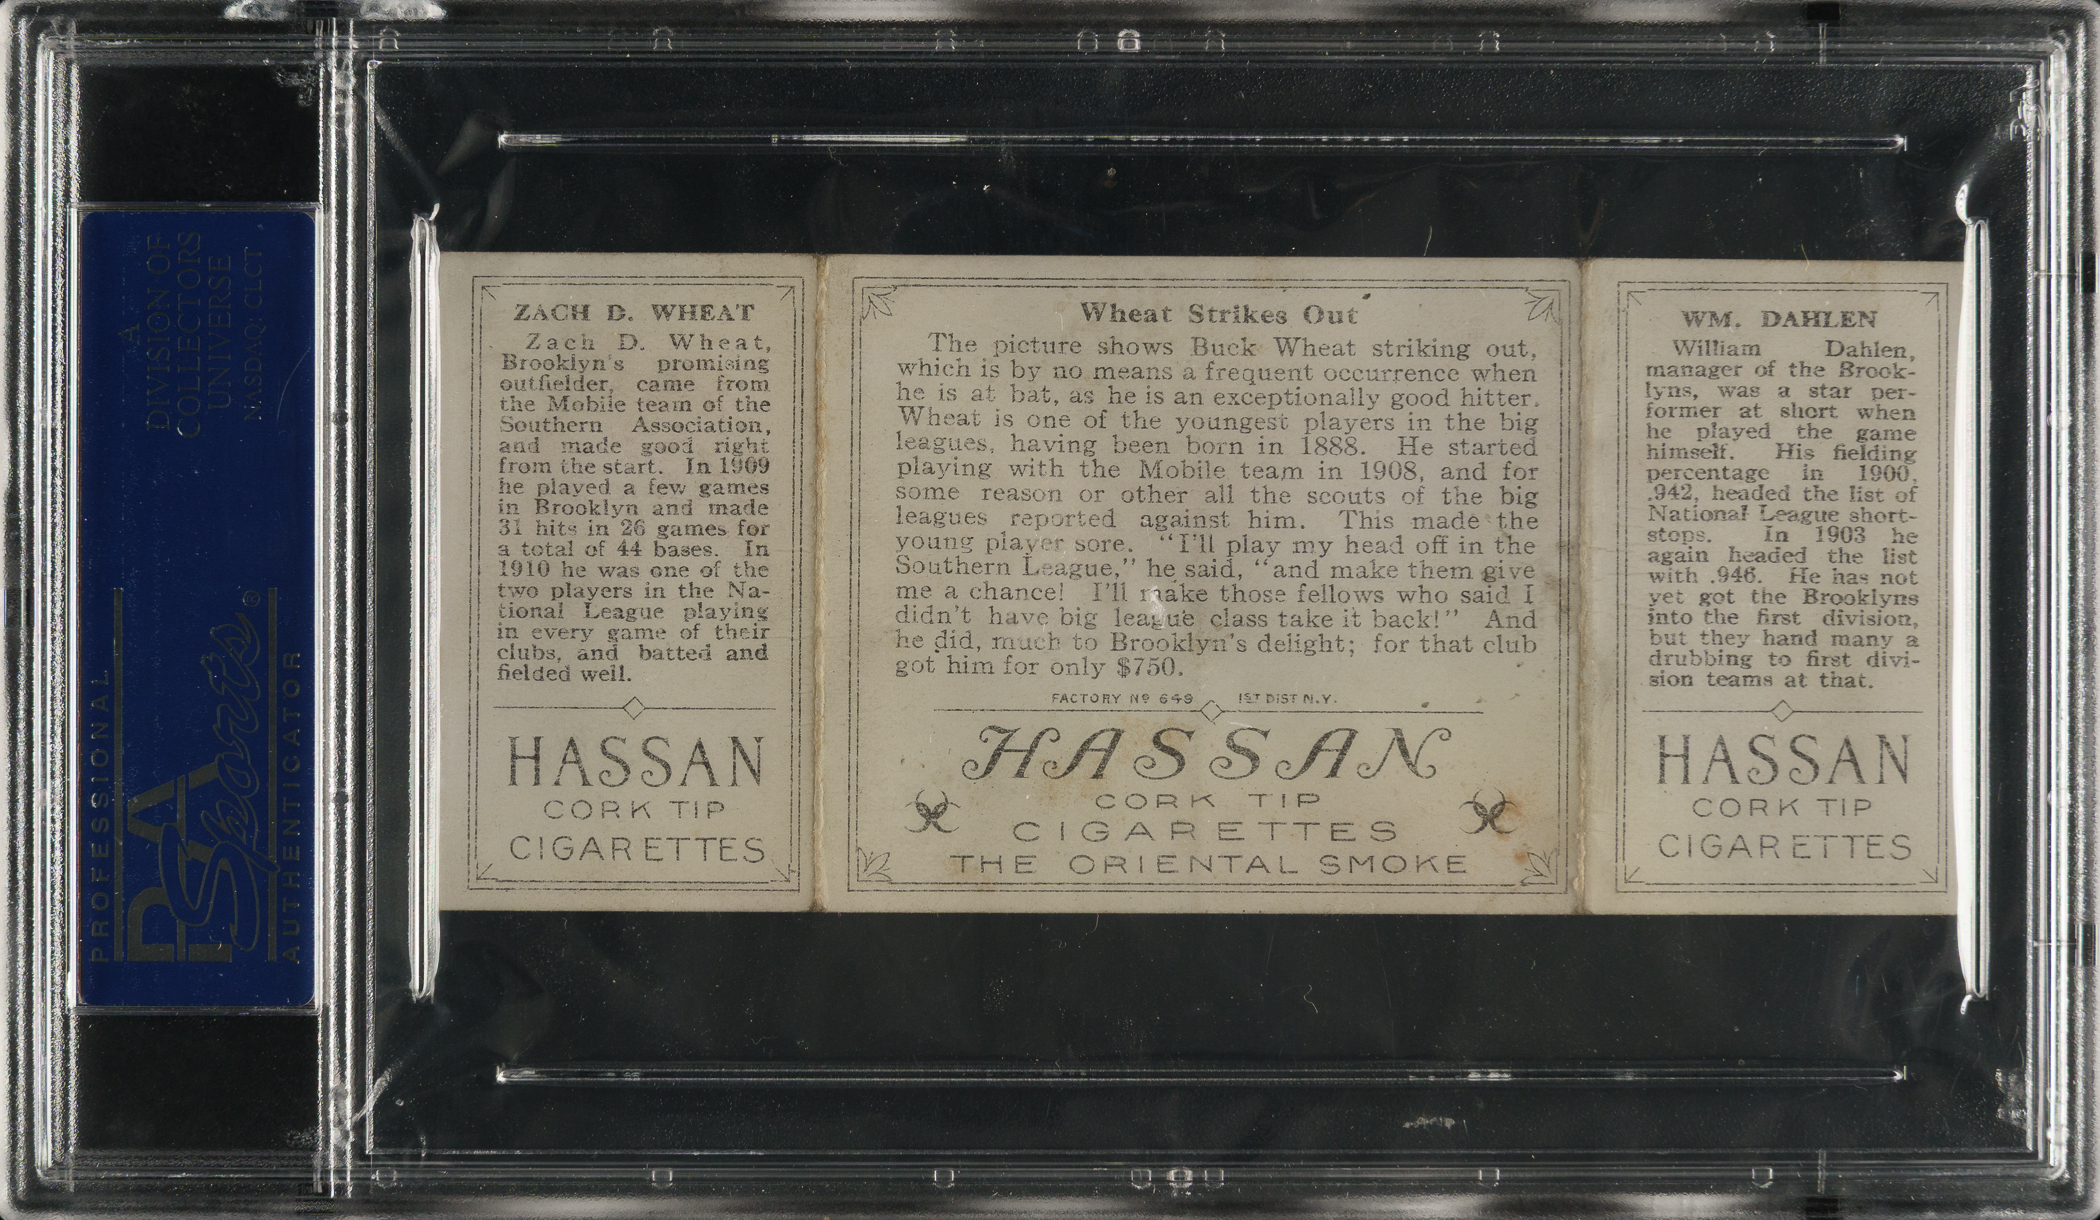 A
DIVISION OF
COLLECTORS
UNIVERSE
NASDAQ: CLCT
PROFESSIONAL
PSA
Sports®
AUTHENTICATOR
ZACH D. WHEAT
Zach D. Wheat,
Brooklyn's promising
outfielder, came from
the Mobile team of the
Southern Association,
and made good right
from the start. In 1909
he played a few games
in Brooklyn and made
31 hits in 26 games for
a total of 44 bases. In
1910 he was one of the
two players in the Na-
tional League playing
in every game of their
clubs, and batted and
fielded well.
HASSAN
CORK TIP
CIGARETTES
Wheat Strikes Out
The picture shows Buck Wheat striking out,
which is by no means a frequent occurrence when
he is at bat, as he is an exceptionally good hitter.
Wheat is one of the youngest players in the big
leagues, having been born in 1888. He started
playing with the Mobile team in 1908, and for
some reason or other all the scouts of the big
leagues reported against him. This made the
young player sore. "I'll play my head off in the
Southern League," he said, "and make them give
me a chance! I'll make those fellows who said I
didn't have big league class take it back!" And
he did, much to Brooklyn's delight; for that club
got him for only $750.
FACTORY Nº 649 1ST DIST N.Y.
HASSAN
CORK TIP
CIGARETTES
THE ORIENTAL SMOKE
WM. DAHLEN
William Dahlen,
manager of the Brook-
lyns, was a star per-
former at short when
he played the game
himself. His fielding
percentage in 1900,
.942, headed the list of
National League short-
stops. In 1903 he
again headed the list
with .946. He has not
yet got the Brooklyns
into the first division,
but they hand many a
drubbing to first divi-
sion teams at that.
HASSAN
CORK TIP
CIGARETTES